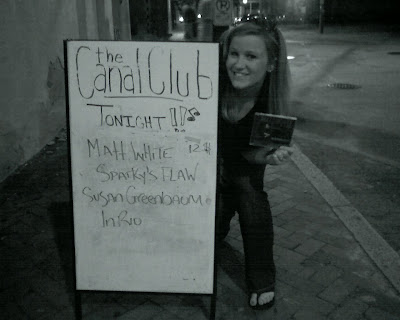 the
Canal Club
TONIGHT!!♪
MATT WHITE 12$
SPARKY'S FLAW
SUSAN GREENBAUM
IN RIO